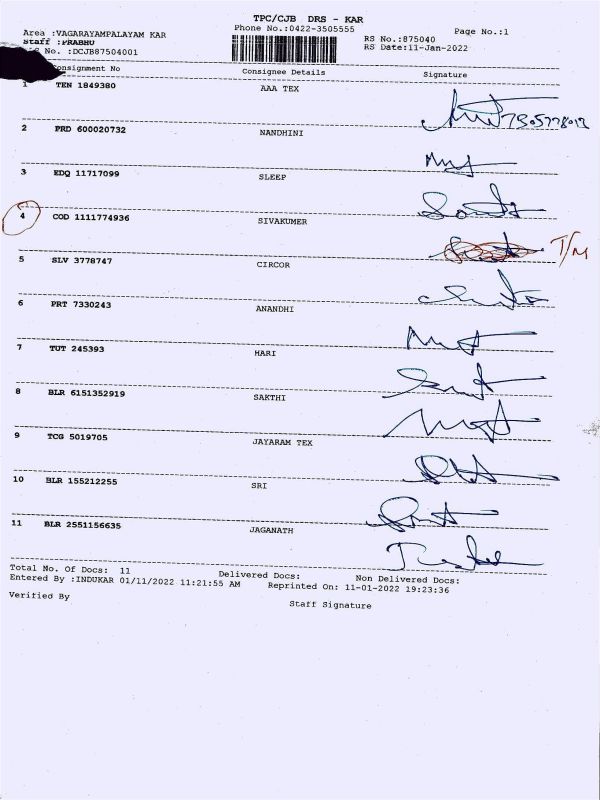 TPC/CJB DRS - KAR
Area :VAGARAYAMPALAYAM KAR Phone No.:0422-3505555 Page No.:1
Staff :PRABHU RS No.:875040
S No. :DCJB87504001 RS Date:11-Jan-2022
onsignment No Consignee Details Signature
1 TEN 1849380 AAA TEX
2 PRD 600020732 NANDHINI
3 EDQ 11717099 SLEEP
4 COD 1111774936 SIVAKUMER
T/M
5 SLV 3778747 CIRCOR
6 PRT 7330243 ANANDHI
7 TUT 245393 HARI
8 BLR 6151352919 SAKTHI
9 TCG 5019705 JAYARAM TEX
10 BLR 155212255 SRI
11 BLR 2551156635 JAGANATH
Total No. Of Docs: 11 Delivered Docs: Non Delivered Docs:
Entered By :INDUKAR 01/11/2022 11:21:55 AM Reprinted On: 11-01-2022 19:23:36
Verified By Staff Signature